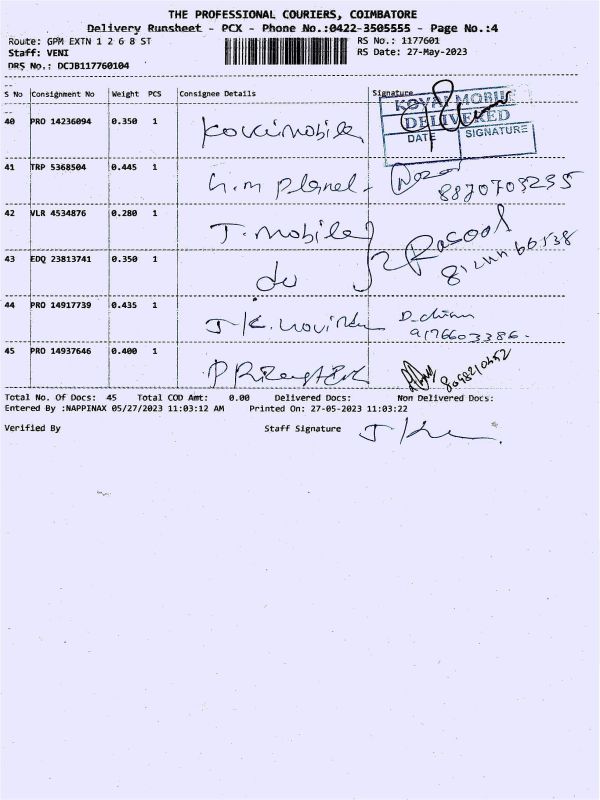 THE PROFESSIONAL COURIERS, COIMBATORE
Delivery Runsheet - PCX - Phone No.:0422-3505555 - Page No.:4
Route: GPM EXTN 1 2 6 8 ST RS No.: 1177601
Staff: VENI RS Date: 27-May-2023
DRS No.: DCJB117760104
S No Consignment No Weight PCS Consignee Details Signature
40 PRO 14236094 0.350 1
KOVAI MOBILE
DELIVERED
DATE SIGNATURE
41 TRP 5368504 0.445 1 h.m planet
8870703235
42 VLR 4534876 0.280 1 T. mobile
Rasool
43 EDQ 23813741 0.350 1 do
44 PRO 14917739 0.435 1 J.K.
9176603386.
45 PRO 14937646 0.400 1
8098210452
Total No. Of Docs: 45 Total COD Amt: 0.00 Delivered Docs: Non Delivered Docs:
Entered By :NAPPINAX 05/27/2023 11:03:12 AM Printed On: 27-05-2023 11:03:22
Verified By Staff Signature